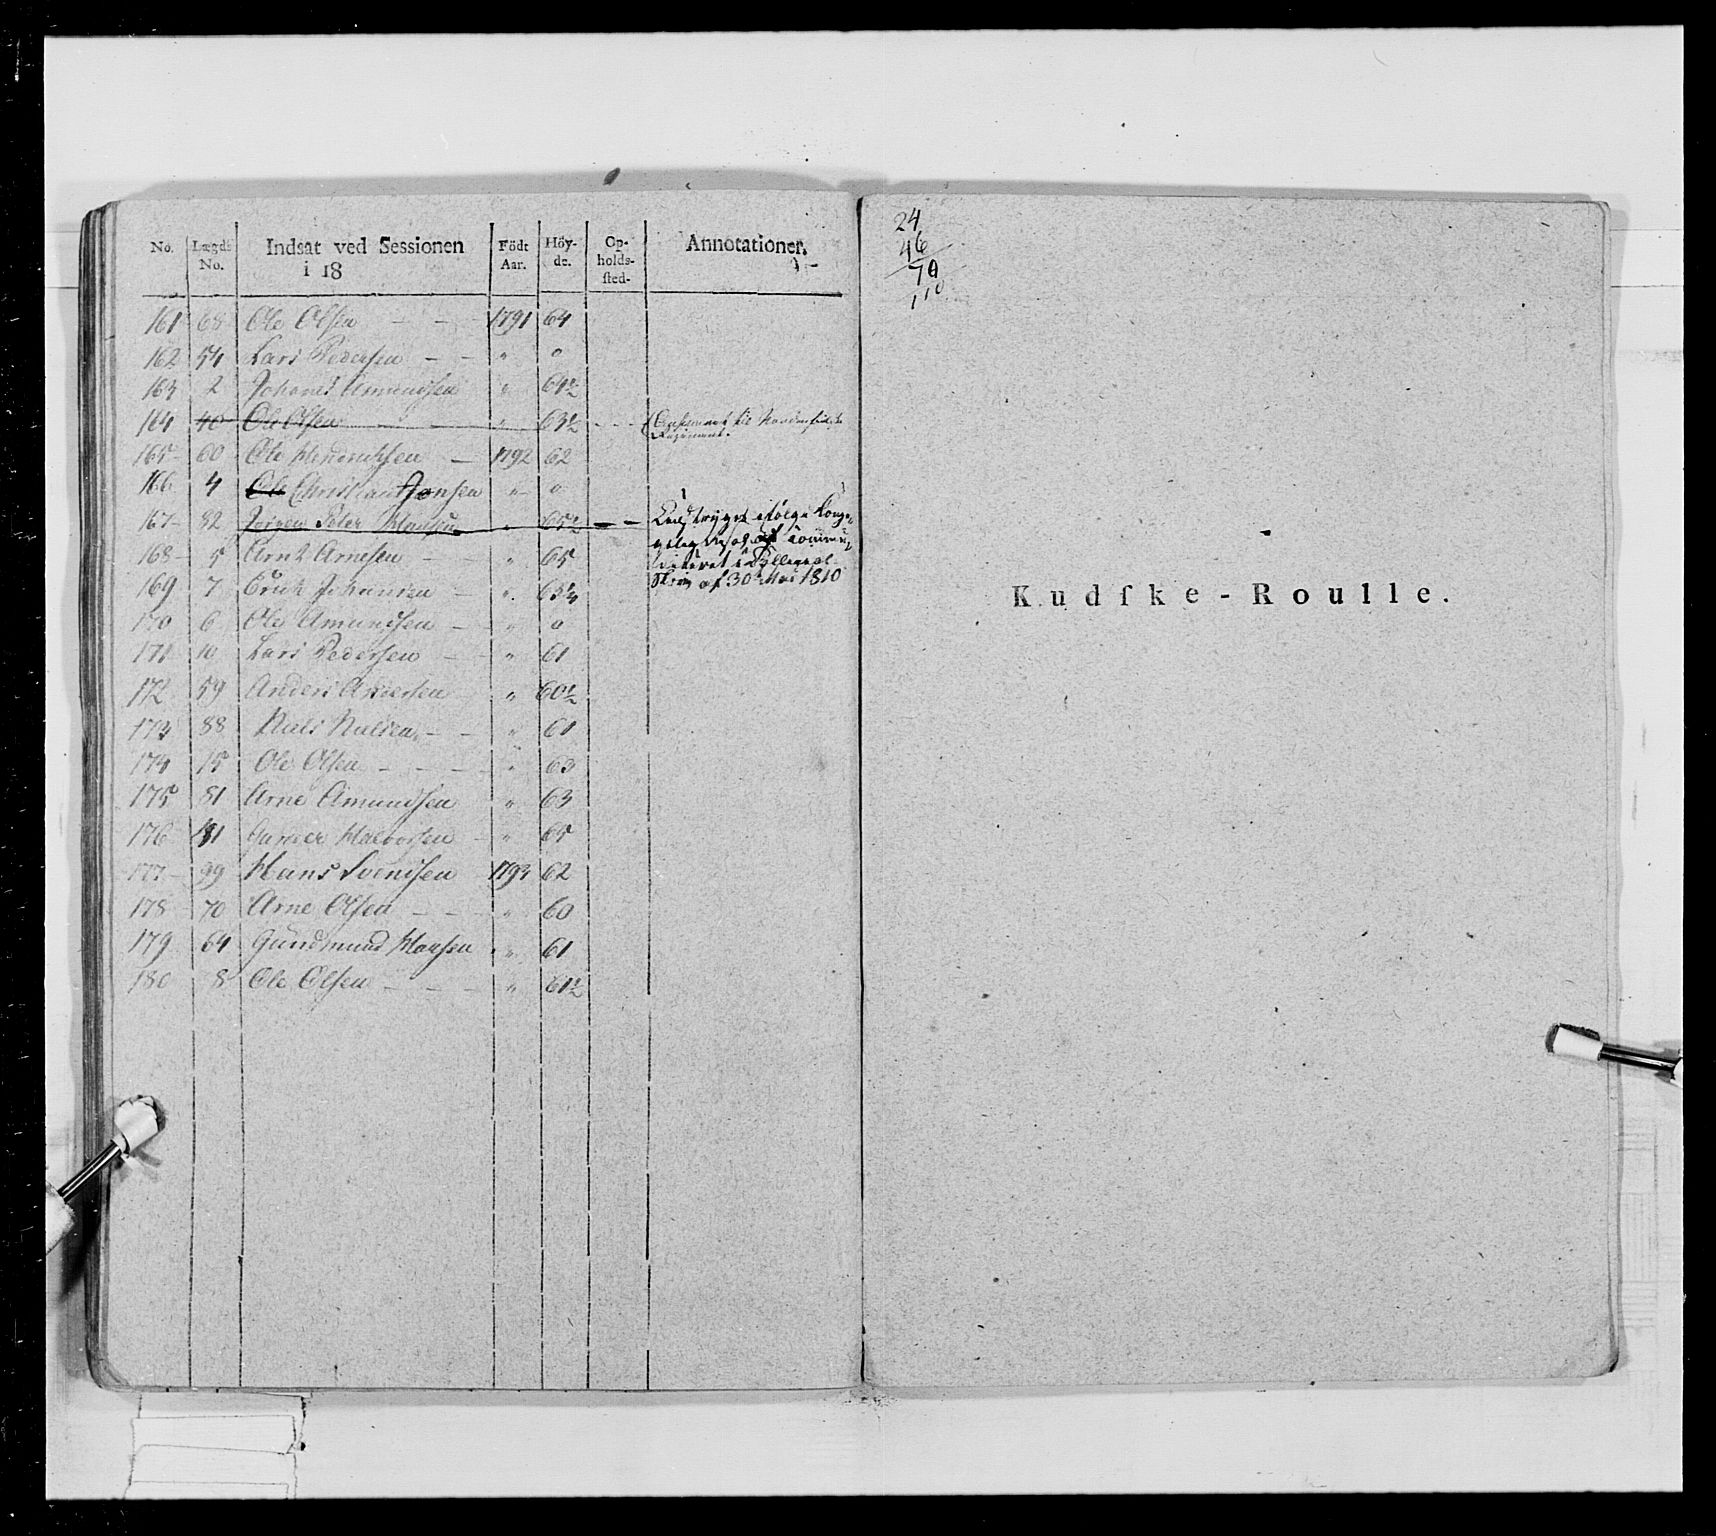 No. Lægds No. Indsat ved Sessionen i 18 Födt Aar. Höyde. Op-holds-sted- Annotationer.
161 68 Ole Olsen — — 1791 64
162 54 Lars Pedersen — — " 0
163 2 Johanes Amundsen " 64½
164 40 Ole Olsen — — " 63½ - - - Regiment.
165 60 Ole Hendrichsen — 1792 62
166 4 Ole Christian Jonsen " 0
167 82 Jörgen Peter Hansen " 65½ — — Udstryget ifölge Konge-
168 5 Arnt Arnesen — " 65
169 7 Erich Johansen — " 63¼ Skriv af 30te Mai 1810
170 6 Ole Amundsen — " 0
171 10 Lars Pedersen — " 61
172 59 Anders Andersen " 60½
173 88 Niels Nielsen — — " 61
174 15 Ole Olsen — — — " 63
175 81 Arne Amundsen " 63
176 41 Gunder Halvorsen — " 65
177 99 Hans Svendsen 1793 62
178 70 Arne Olsen — — " 60
179 64 Gundmund Hansen " 61
180 8 Ole Olsen — — — " 61½
24
46
70
110
Kudske-Roulle.